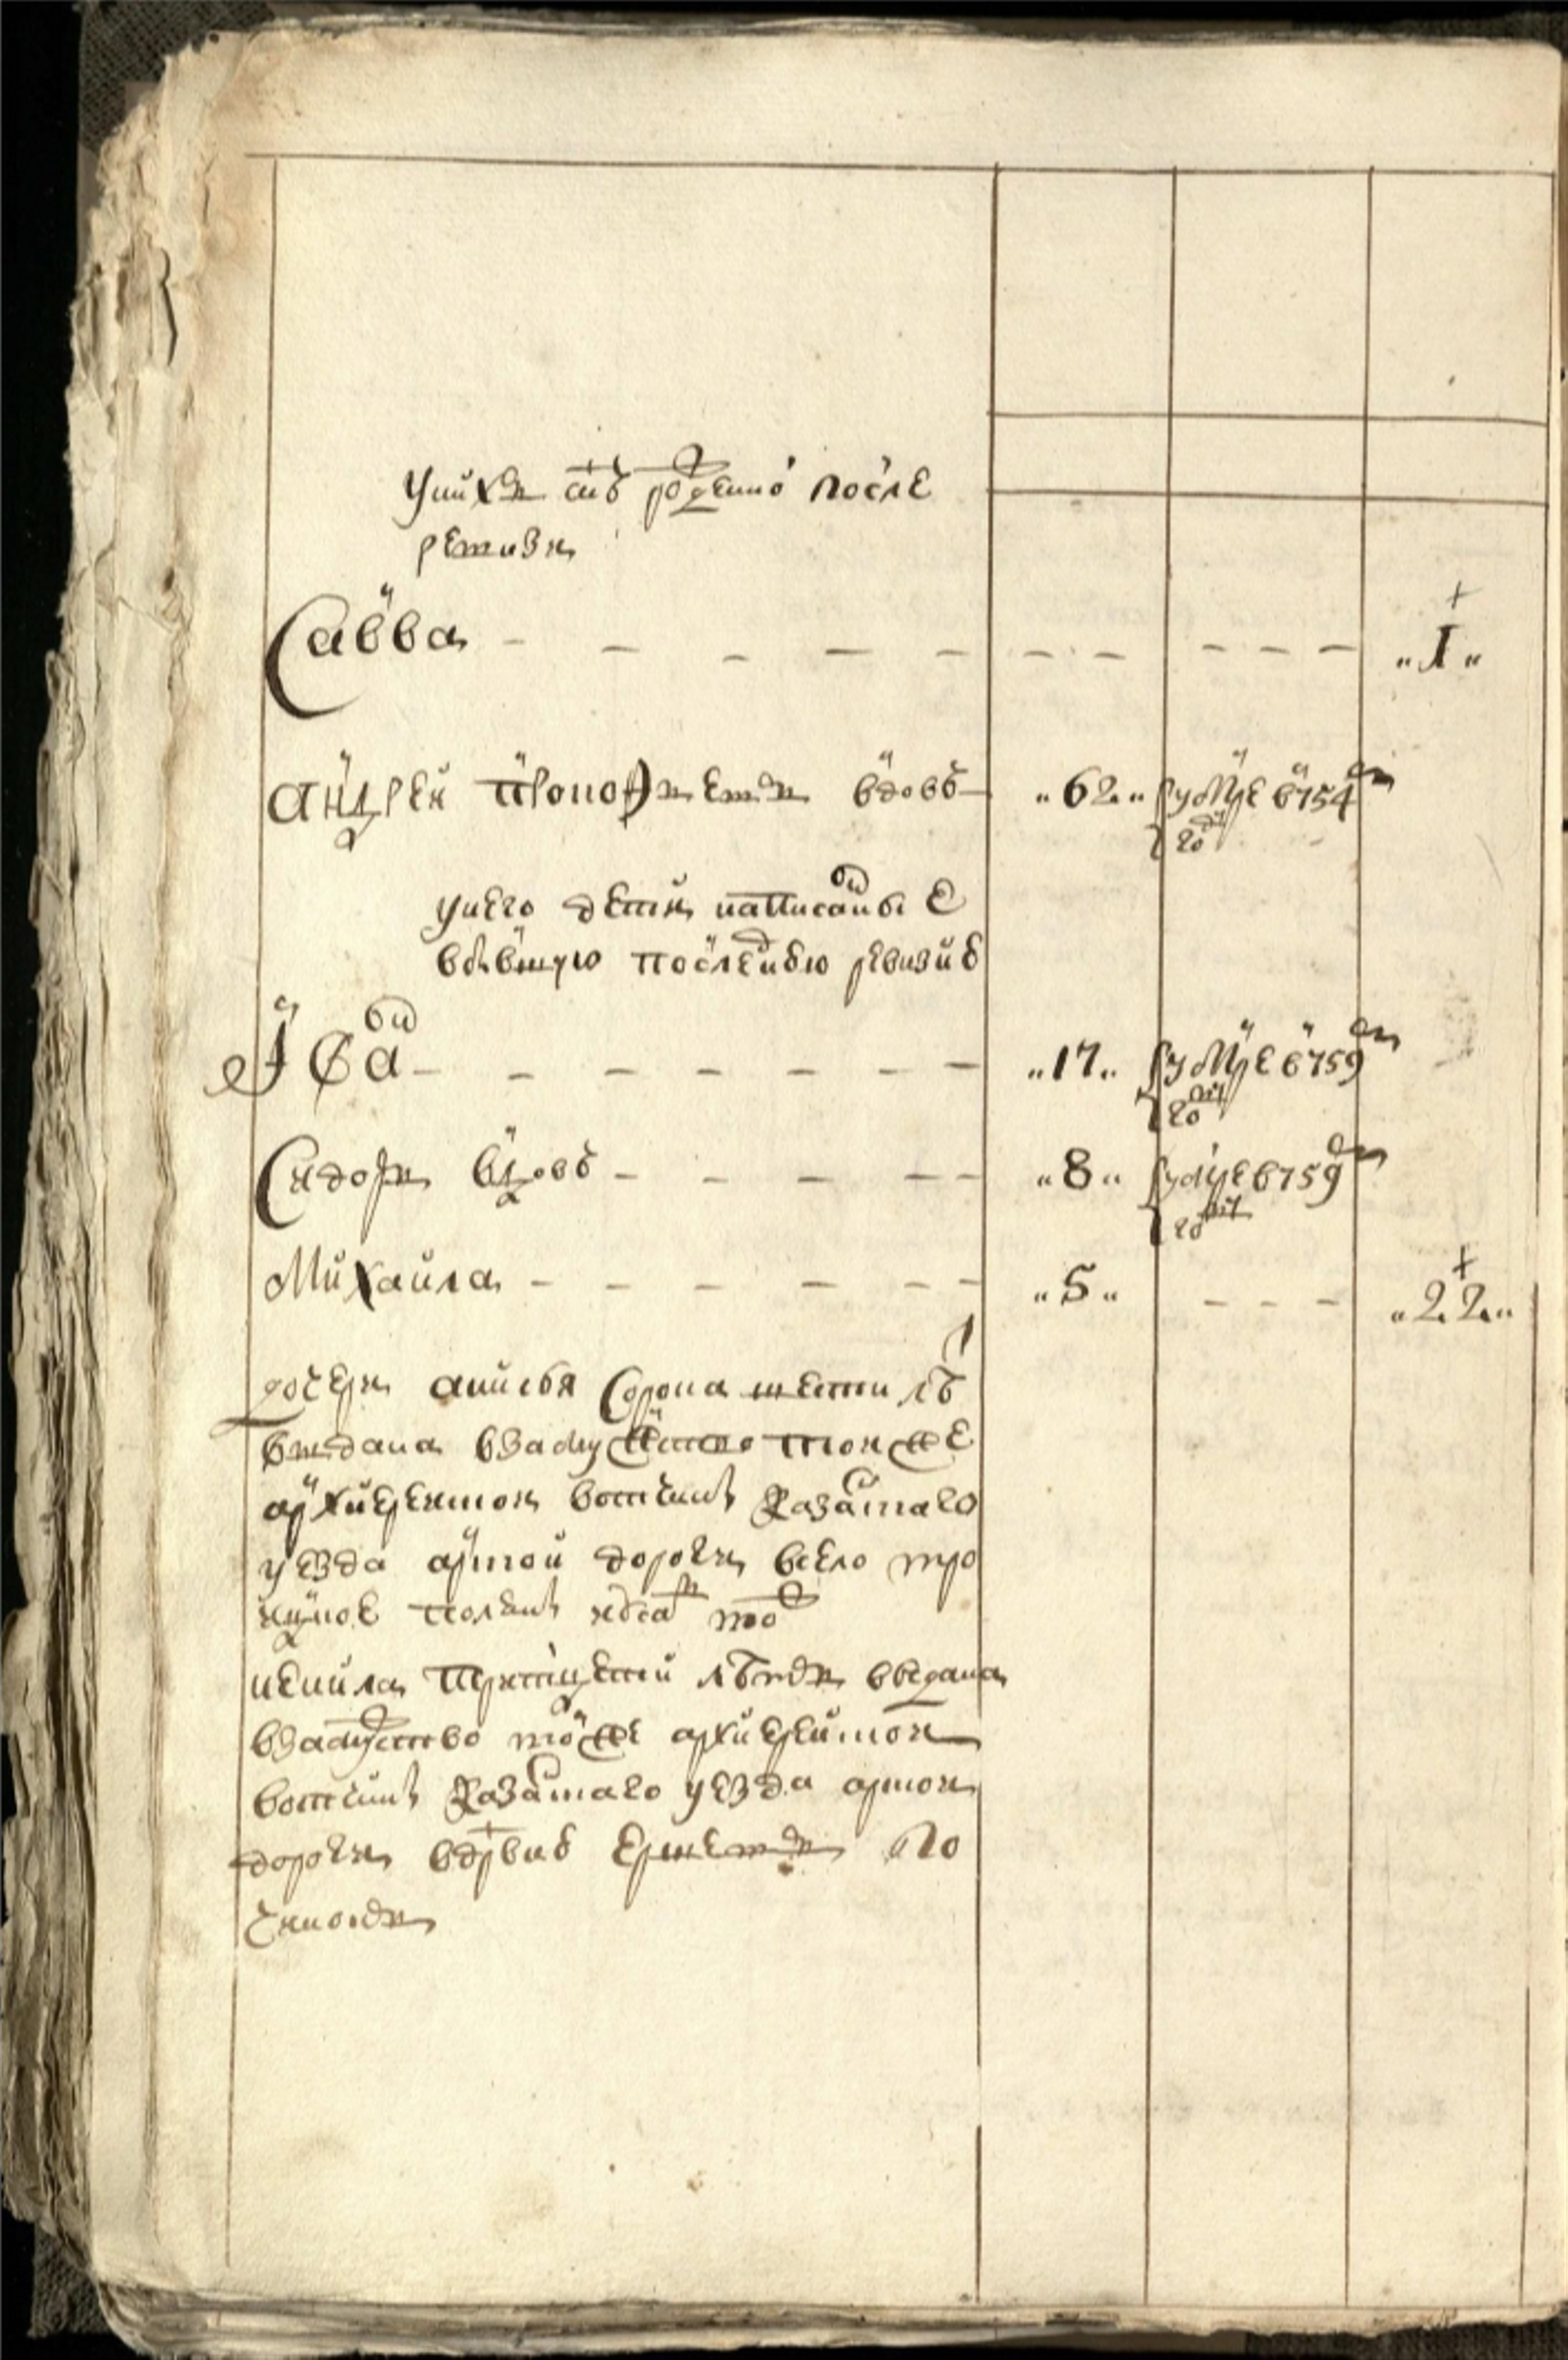 У них снъ рожденно после
ревизи
Савва - - - - - - - - - - - „1„
Андрей Прокофиевъ вдовъ „62„ умре в 754м
году
у него дети написаныя
в бывшую последнюю ревизию
Иванъ - - - - - - - „17„ умре в 759м
году
Сидоръ вдовъ - - - - - „8„ умре в 759м
году
Михаила - - - - - - „5„ - - - „22„
дочери Анисья сорока шести лѣтъ
выдана в замужество той же
архиерейской вотчины Казанского
уезда арской дороги в село Тро
ицкое
Ненила тритцети лѣтъ выдана
в замужество той же архиерейской
вотчины Казанского уезда арской
дороги в дрвню